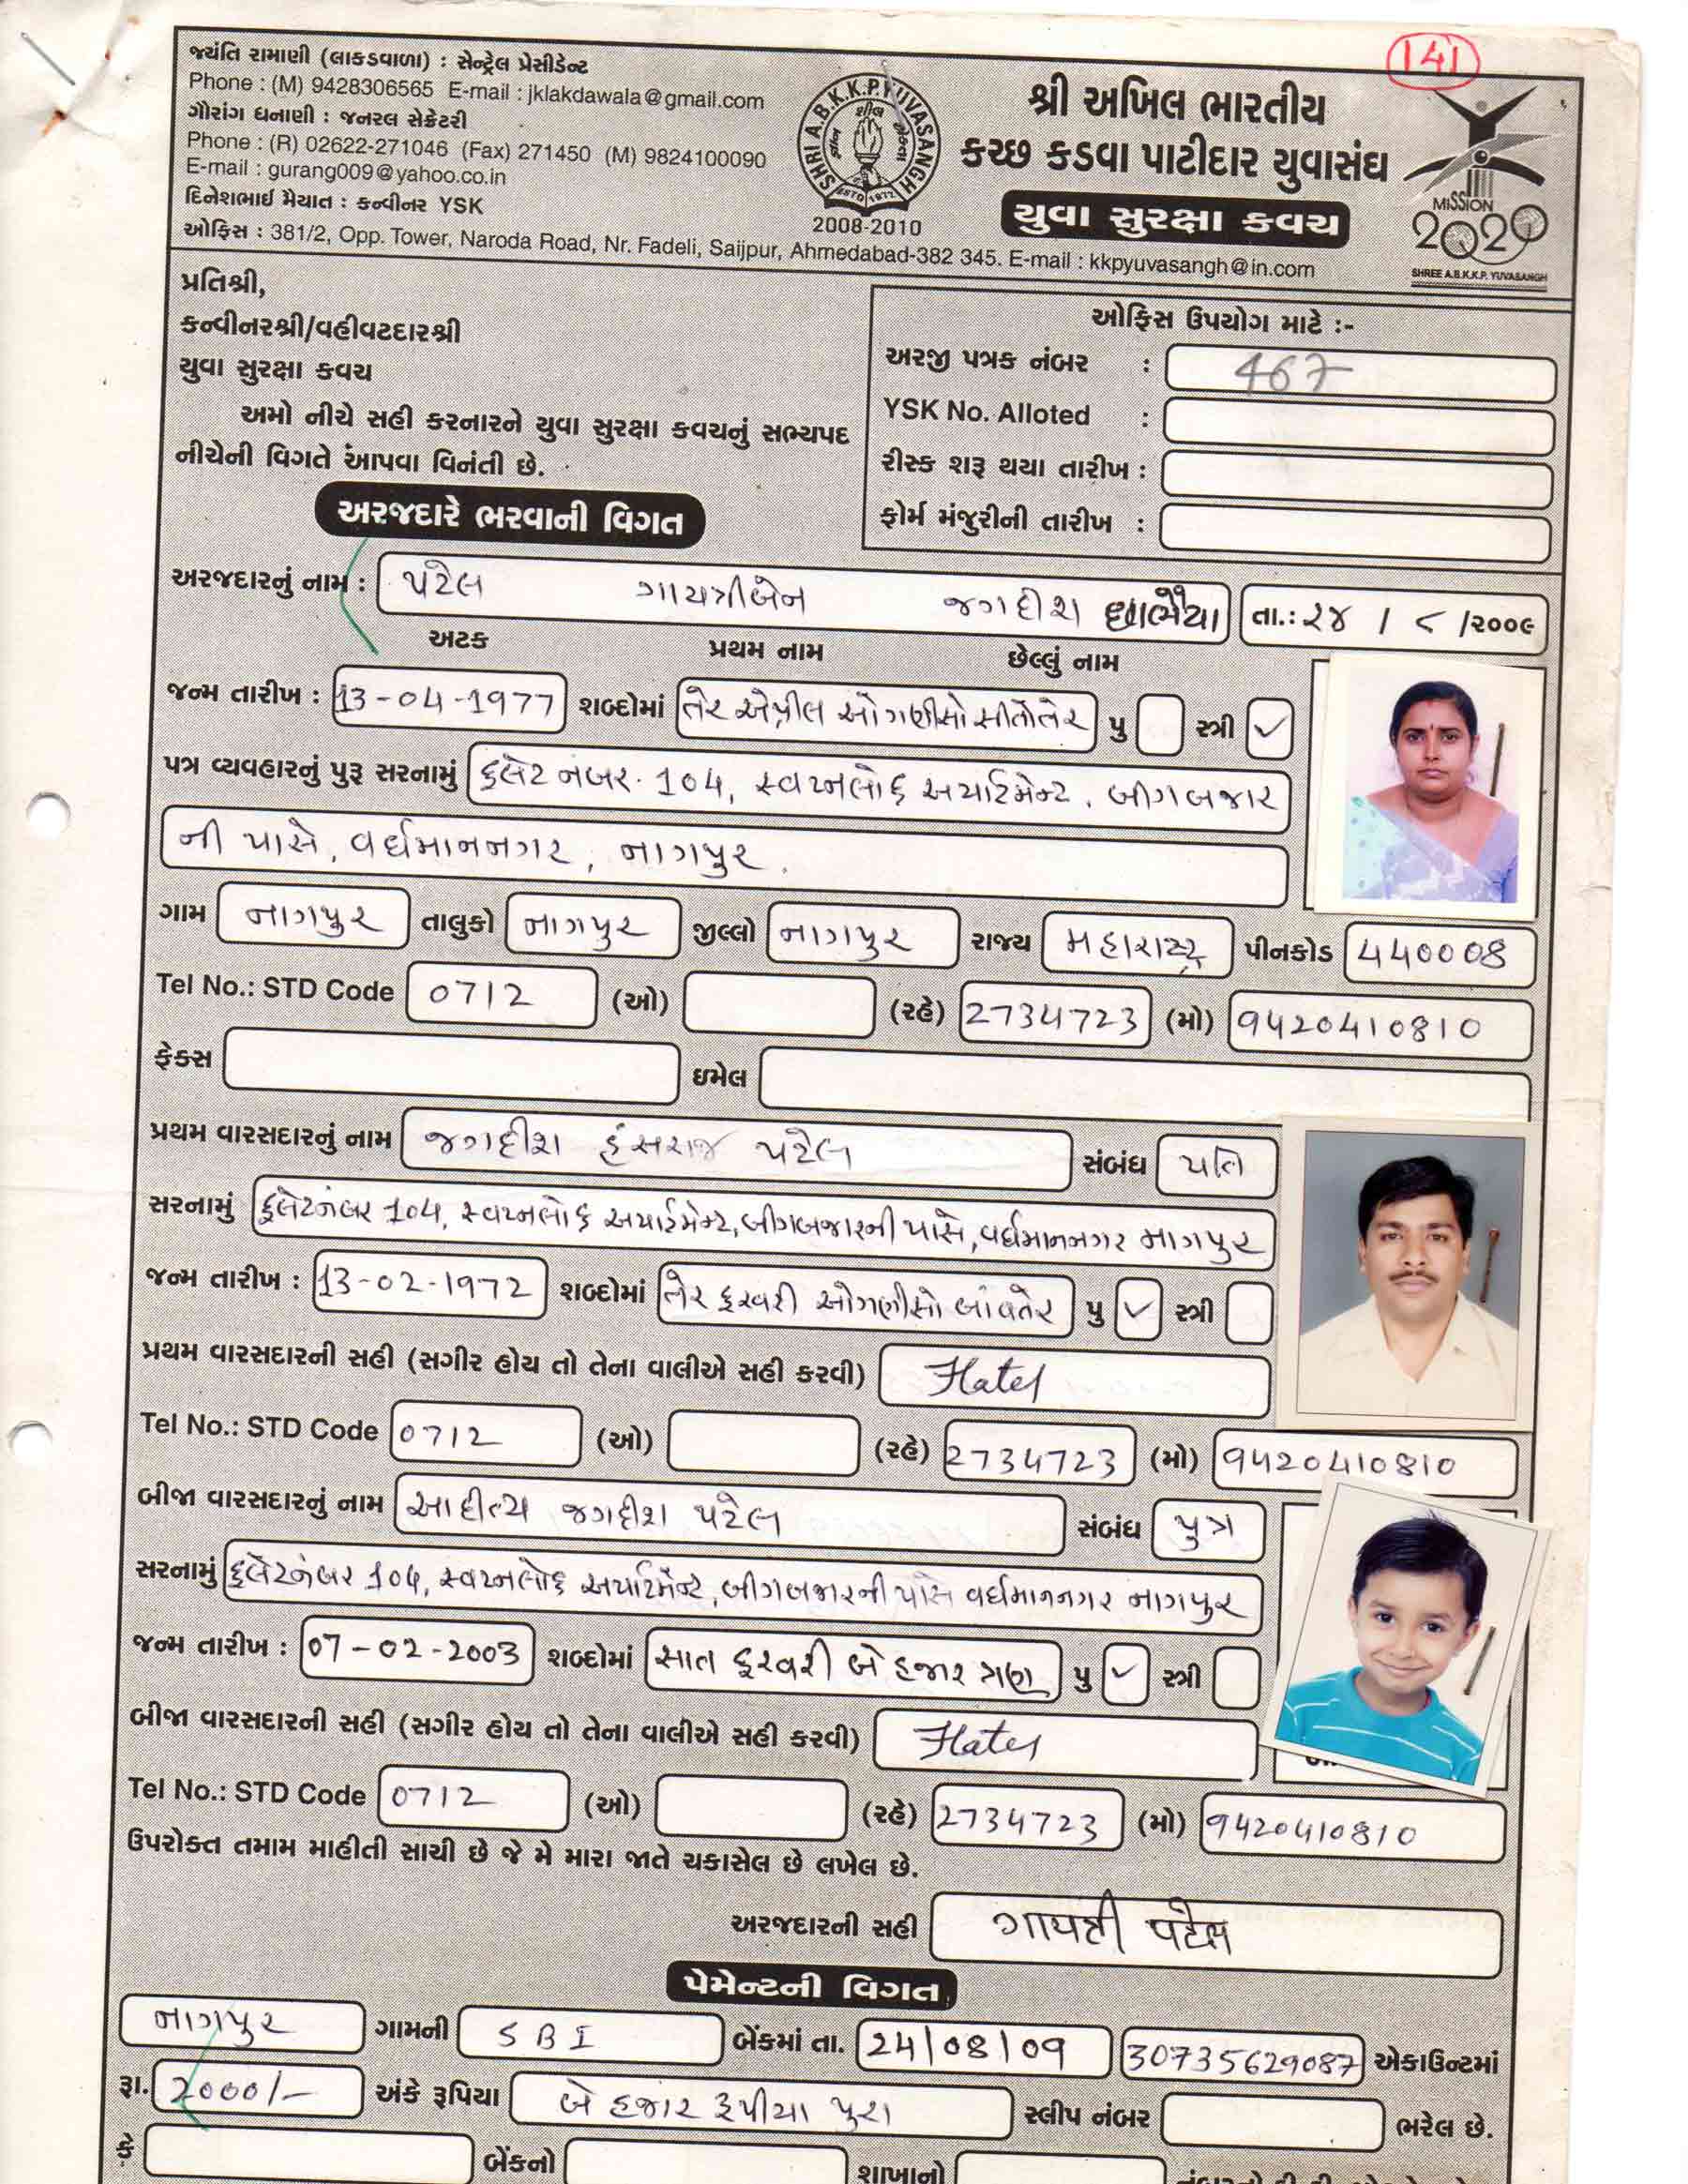 141
જયંતિ રામાણી (લાકડવાળા) : સેન્ટ્રેલ પ્રેસીડેન્ટ
Phone : (M) 9428306565 E-mail : jklakdawala@gmail.com
ગૌરાંગ ધનાણી : જનરલ સેક્રેટરી
Phone : (R) 02622-271046 (Fax) 271450 (M) 9824100090
E-mail : gurang009@yahoo.co.in
દિનેશભાઈ મૈયાત : કન્વીનર YSK
ઓફિસ : 381/2, Opp. Tower, Naroda Road, Nr. Fadeli, Saijpur, Ahmedabad-382 345. E-mail : kkpyuvasangh@in.com
SHRI A.B.K.K.P. YUVASANGH
ESTD 1972
2008-2010
શ્રી અખિલ ભારતીય
કચ્છ કડવા પાટીદાર યુવાસંઘ
યુવા સુરક્ષા કવચ
MISSION
2020
SHREE A.B.K.K.P. YUVASANGH
પ્રતિશ્રી,
કન્વીનરશ્રી/વહીવટદારશ્રી
યુવા સુરક્ષા કવચ
અમો નીચે સહી કરનારને યુવા સુરક્ષા કવચનું સભ્યપદ
નીચેની વિગતે આપવા વિનંતી છે.
ઓફિસ ઉપયોગ માટે :-
અરજી પત્રક નંબર : 467
YSK No. Alloted :
રીસ્ક શરૂ થયા તારીખ :
ફોર્મ મંજુરીની તારીખ :
અરજદારે ભરવાની વિગત
અરજદારનું નામ : પટેલ ગાયત્રીબેન જગદીશ છાભૈયા તા.: ૨૪ / ૮ /૨૦૦૯
અટક પ્રથમ નામ છેલ્લું નામ
જન્મ તારીખ : 13-04-1977 શબ્દોમાં તેર એપ્રીલ ઓગણીસો સીતોતેર પુ સ્ત્રી ✓
પત્ર વ્યવહારનું પુરૂ સરનામું ફ્લેટ નંબર. 104, સ્વપ્નલોક અપાર્ટમેન્ટ, બીગબજાર
ની પાસે, વર્ધમાનનગર, નાગપુર.
ગામ નાગપુર તાલુકો નાગપુર જીલ્લો નાગપુર રાજ્ય મહારાષ્ટ્ર પીનકોડ 440008
Tel No.: STD Code 0712 (ઓ) (રહે) 2734723 (મો) 9420410810
ફેક્સ ઇમેલ
પ્રથમ વારસદારનું નામ જગદીશ હંસરાજ પટેલ સંબંધ પતિ
સરનામું ફ્લેટનંબર 104, સ્વપ્નલોક અપાર્ટમેન્ટ, બીગબજારની પાસે, વર્ધમાનનગર નાગપુર
જન્મ તારીખ : 13-02-1972 શબ્દોમાં તેર ફરવરી ઓગણીસો બાંવતેર પુ ✓ સ્ત્રી
પ્રથમ વારસદારની સહી (સગીર હોય તો તેના વાલીએ સહી કરવી)
Tel No.: STD Code 0712 (ઓ) (રહે) 2734723 (મો) 9420410810
બીજા વારસદારનું નામ આદીત્ય જગદીશ પટેલ સંબંધ પુત્ર
સરનામું ફ્લેટનંબર 104, સ્વપ્નલોક અપાર્ટમેન્ટ, બીગબજારની પાસે વર્ધમાનનગર નાગપુર
જન્મ તારીખ : 07-02-2003 શબ્દોમાં સાત ફરવરી બે હજાર ત્રણ પુ ✓ સ્ત્રી
બીજા વારસદારની સહી (સગીર હોય તો તેના વાલીએ સહી કરવી)
Tel No.: STD Code 0712 (ઓ) (રહે) 2734723 (મો) 9420410810
ઉપરોક્ત તમામ માહીતી સાચી છે જે મે મારા જાતે ચકાસેલ છે લખેલ છે.
અરજદારની સહી ગાયત્રી પટેલ
પેમેન્ટની વિગત
નાગપુર ગામની SBI બેંકમાં તા. 24/08/09 30735629087 એકાઉન્ટમાં
રૂા. 2000/- અંકે રૂપિયા બે હજાર રૂપીયા પુરા સ્લીપ નંબર ભરેલ છે.
કે બેંકનો શાખાનો